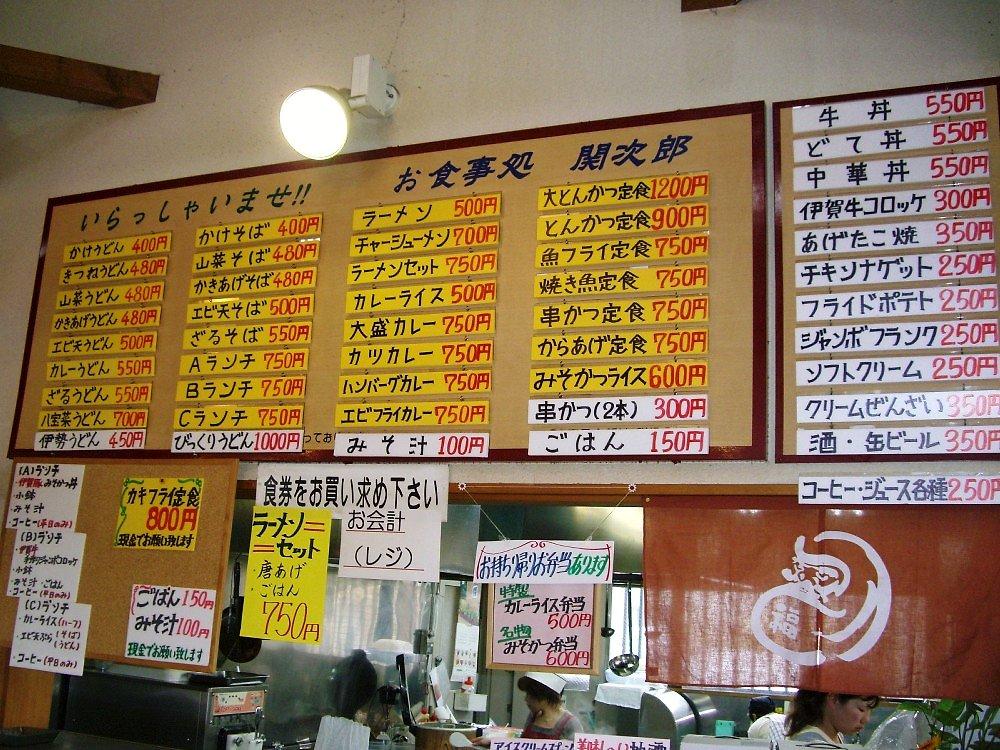 いらっしゃいませ!!
お食事処 関次郎
かけうどん 400円
きつねうどん 480円
山菜うどん 480円
かきあげうどん 480円
エビ天うどん 500円
カレーうどん 550円
ざるうどん 550円
八宝菜うどん 700円
伊勢うどん 450円
かけそば 400円
山菜そば 480円
かきあげそば 480円
エビ天そば 500円
ざるそば 550円
Aランチ 750円
Bランチ 750円
Cランチ 750円
びっくりうどん 1000円
ラーメン 500円
チャーシューメン 700円
ラーメンセット 750円
カレーライス 500円
大盛カレー 750円
カツカレー 750円
ハンバーグカレー 750円
エビフライカレー 750円
みそ汁 100円
大とんかつ定食 1200円
とんかつ定食 900円
魚フライ定食 750円
焼き魚定食 750円
串かつ定食 750円
からあげ定食 750円
みそかつライス 600円
串かつ(2本) 300円
ごはん 150円
牛丼 550円
どて丼 550円
中華丼 550円
伊賀牛コロッケ 300円
あげたこ焼 350円
チキンナゲット 250円
フライドポテト 250円
ジャンボフランク 250円
ソフトクリーム 250円
クリームぜんざい 350円
酒・缶ビール 350円
コーヒー・ジュース各種 250円
(A)ランチ
・伊賀豚みそかつ丼
・小鉢
・みそ汁
・コーヒー(平日のみ)
(B)ランチ
・伊賀牛
手作りジャンボコロッケ
・小鉢
・みそ汁・ごはん
・コーヒー(平日のみ)
(C)ランチ
・カレーライス(ハーフ)
・エビ天ぷら(そば)
(うどん)
・コーヒー(平日のみ)
カキフライ定食
800円
現金でお願い致します
ごはん 150円
みそ汁 100円
現金でお願い致します
食券をお買い求め下さい
お会計
(レジ)
ラーメン=
=セット
・唐あげ
・ごはん
750円
お持ち帰りお弁当あります
特製
カレーライス弁当
500円
名物
みそかつ弁当
600円
福
アイスクリームスプーン
美味しい